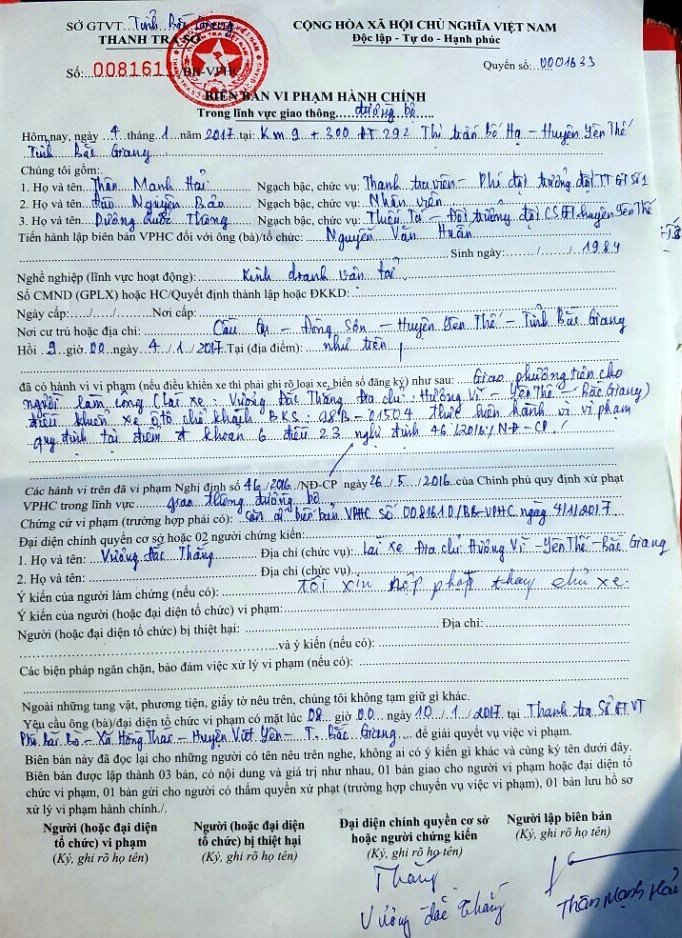 SỞ GTVT Tỉnh Bắc Giang
THANH TRA SỞ
CỘNG HÒA XÃ HỘI CHỦ NGHĨA VIỆT NAM
Độc lập - Tự do - Hạnh phúc
Số: 008161 /BB-VPHC
Quyển số: 0001633
BIÊN BẢN VI PHẠM HÀNH CHÍNH
Trong lĩnh vực giao thông đường bộ
Hôm nay, ngày 4 tháng 1 năm 2017 tại: Km 9 + 300 ĐT 292 Thị trấn Bố Hạ - Huyện Yên Thế
Tỉnh Bắc Giang
Chúng tôi gồm:
1. Họ và tên: Thân Mạnh Hải Ngạch bậc, chức vụ: Thanh tra viên - Phó đội trưởng đội TTGT Số 1
2. Họ và tên: Đào Nguyên Bảo Ngạch bậc, chức vụ: Nhân viên
3. Họ và tên: Dương Quốc Thông Ngạch bậc, chức vụ: Thiếu Tá - Đội trưởng đội CSGT huyện Yên Thế
Tiến hành lập biên bản VPHC đối với ông (bà)/tổ chức: Nguyễn Văn Huấn
Sinh ngày: / / 1984
Nghề nghiệp (lĩnh vực hoạt động): Kinh doanh vận tải
Số CMND (GPLX) hoặc HC/Quyết định thành lập hoặc ĐKKD:
Ngày cấp: / / Nơi cấp:
Nơi cư trú hoặc địa chỉ: Cầu - Đông Sơn - Huyện Yên Thế - Tỉnh Bắc Giang
Hồi 9 giờ 00 ngày 4 / 1 / 2017 Tại (địa điểm): như trên
đã có hành vi vi phạm (nếu điều khiển xe thì phải ghi rõ loại xe, biển số đăng ký) như sau: Giao phương tiện cho
người làm công (Lái xe: Vương Đắc Thắng Địa chỉ: Hương Vĩ - Yên Thế - Bắc Giang)
điều khiển xe ôtô chở khách BKS: 98B-01504 thực hiện hành vi vi phạm
quy định tại điểm đ khoản 6 điều 23 nghị định 46/2016/NĐ-CP.
Các hành vi trên đã vi phạm Nghị định số 46/2016/NĐ-CP ngày 26/5/2016 của Chính phủ quy định xử phạt
VPHC trong lĩnh vực giao thông đường bộ
Chứng cứ vi phạm (trường hợp phải có): Căn cứ biên bản VPHC số 0081610/BB-VPHC ngày 4/1/2017
Đại diện chính quyền cơ sở hoặc 02 người chứng kiến:
1. Họ và tên: Vương Đắc Thắng Địa chỉ (chức vụ): Lái xe Địa chỉ Hương Vĩ - Yên Thế - Bắc Giang
2. Họ và tên: Địa chỉ (chức vụ)
Ý kiến của người làm chứng (nếu có): Tôi xin nộp phạt thay chủ xe.
Ý kiến của người (hoặc đại diện tổ chức) vi phạm:
Người (hoặc đại diện tổ chức) bị thiệt hại: Địa chỉ:
và ý kiến (nếu có):
Các biện pháp ngăn chặn, bảo đảm việc xử lý vi phạm (nếu có):
Ngoài những tang vật, phương tiện, giấy tờ nêu trên, chúng tôi không tạm giữ gì khác.
Yêu cầu ông (bà)/đại diện tổ chức vi phạm có mặt lúc 08 giờ 00 ngày 10/1/2017 tại Thanh tra Sở GTVT
- Xã Hồng Thái - Huyện Việt Yên - T. Bắc Giang để giải quyết vụ việc vi phạm.
Biên bản này đã đọc lại cho những người có tên nêu trên nghe, không ai có ý kiến gì khác và cùng ký tên dưới đây.
Biên bản được lập thành 03 bản, có nội dung và giá trị như nhau, 01 bản giao cho người vi phạm hoặc đại diện tổ
chức vi phạm, 01 bản gửi cho người có thẩm quyền xử phạt (trường hợp chuyển vụ việc vi phạm), 01 bản lưu hồ sơ
xử lý vi phạm hành chính./.
Người (hoặc đại diện tổ chức) vi phạm
(Ký, ghi rõ họ tên)
Người (hoặc đại diện tổ chức) bị thiệt hại
(Ký, ghi rõ họ tên)
Đại diện chính quyền cơ sở hoặc người chứng kiến
(Ký, ghi rõ họ tên)
Người lập biên bản
(Ký, ghi rõ họ tên)
Thắng
Vương Đắc Thắng
Thân Mạnh Hải